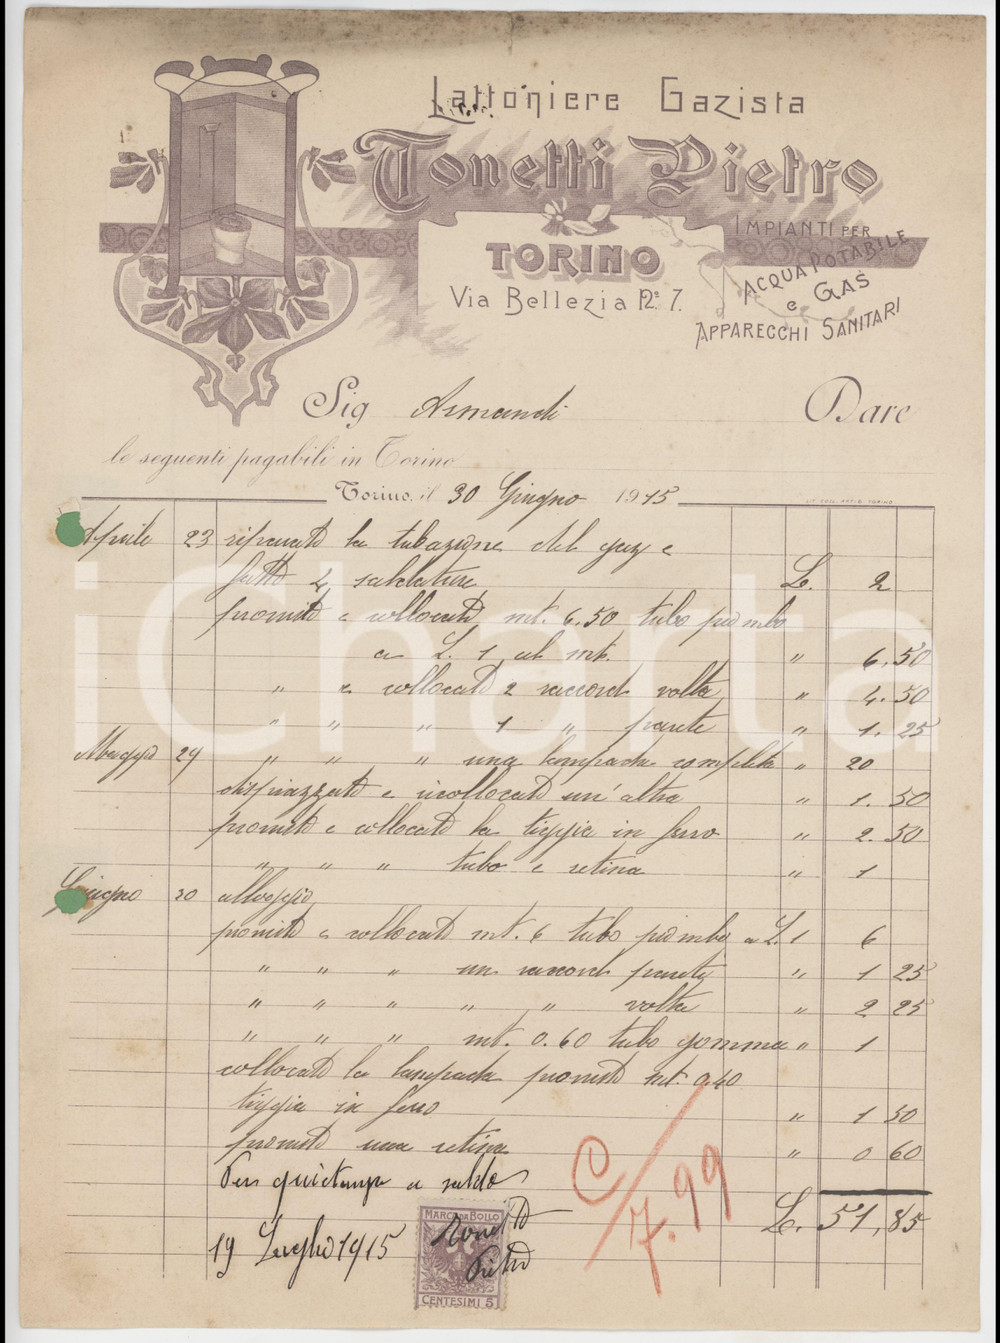 Lattoniere Gazista
Tonetti Pietro
TORINO
Via Bellezia N.º 7.
IMPIANTI PER
ACQUA POTABILE
e GAS
APPARECCHI SANITARI
Sig Armandi Dare
le seguenti pagabili in Torino
Torino, il 30 Giugno 1915
Aprile 23 riparato la tubazione del gaz e
fatto 4 saldature L. 2
provvisto e collocato mt. 6.50 tubo piombo
a L. 1 al mt. " 6,50
" e collocato 2 raccordi volta " 4.50
" " " 1 " parete " 1.25
Maggio 29 " " " una lampada completa " 20
dispiazzato e ricollocato un'altra " 1.50
provvisto e collocato la tiggia in ferro " 2.50
" " " tubo e retina " 1
Giugno 20 alloggio
provvisto e collocato mt. 6 tubo piombo a L. 1 6
" " " un raccord parete " 1 25
" " " " " volta " 2 25
" " " mt. 0.60 tubo gomma " 1
collocato la lampada provvisto mt. 0,40
tiggia in ferro " 1 50
provvisto una retina " 0 60
Per quietanza a saldo
L. 51,85
19 Luglio 1915
Tonetti
Pietro
MARCA DA BOLLO
CENTESIMI 5
C/7.99
iCharta